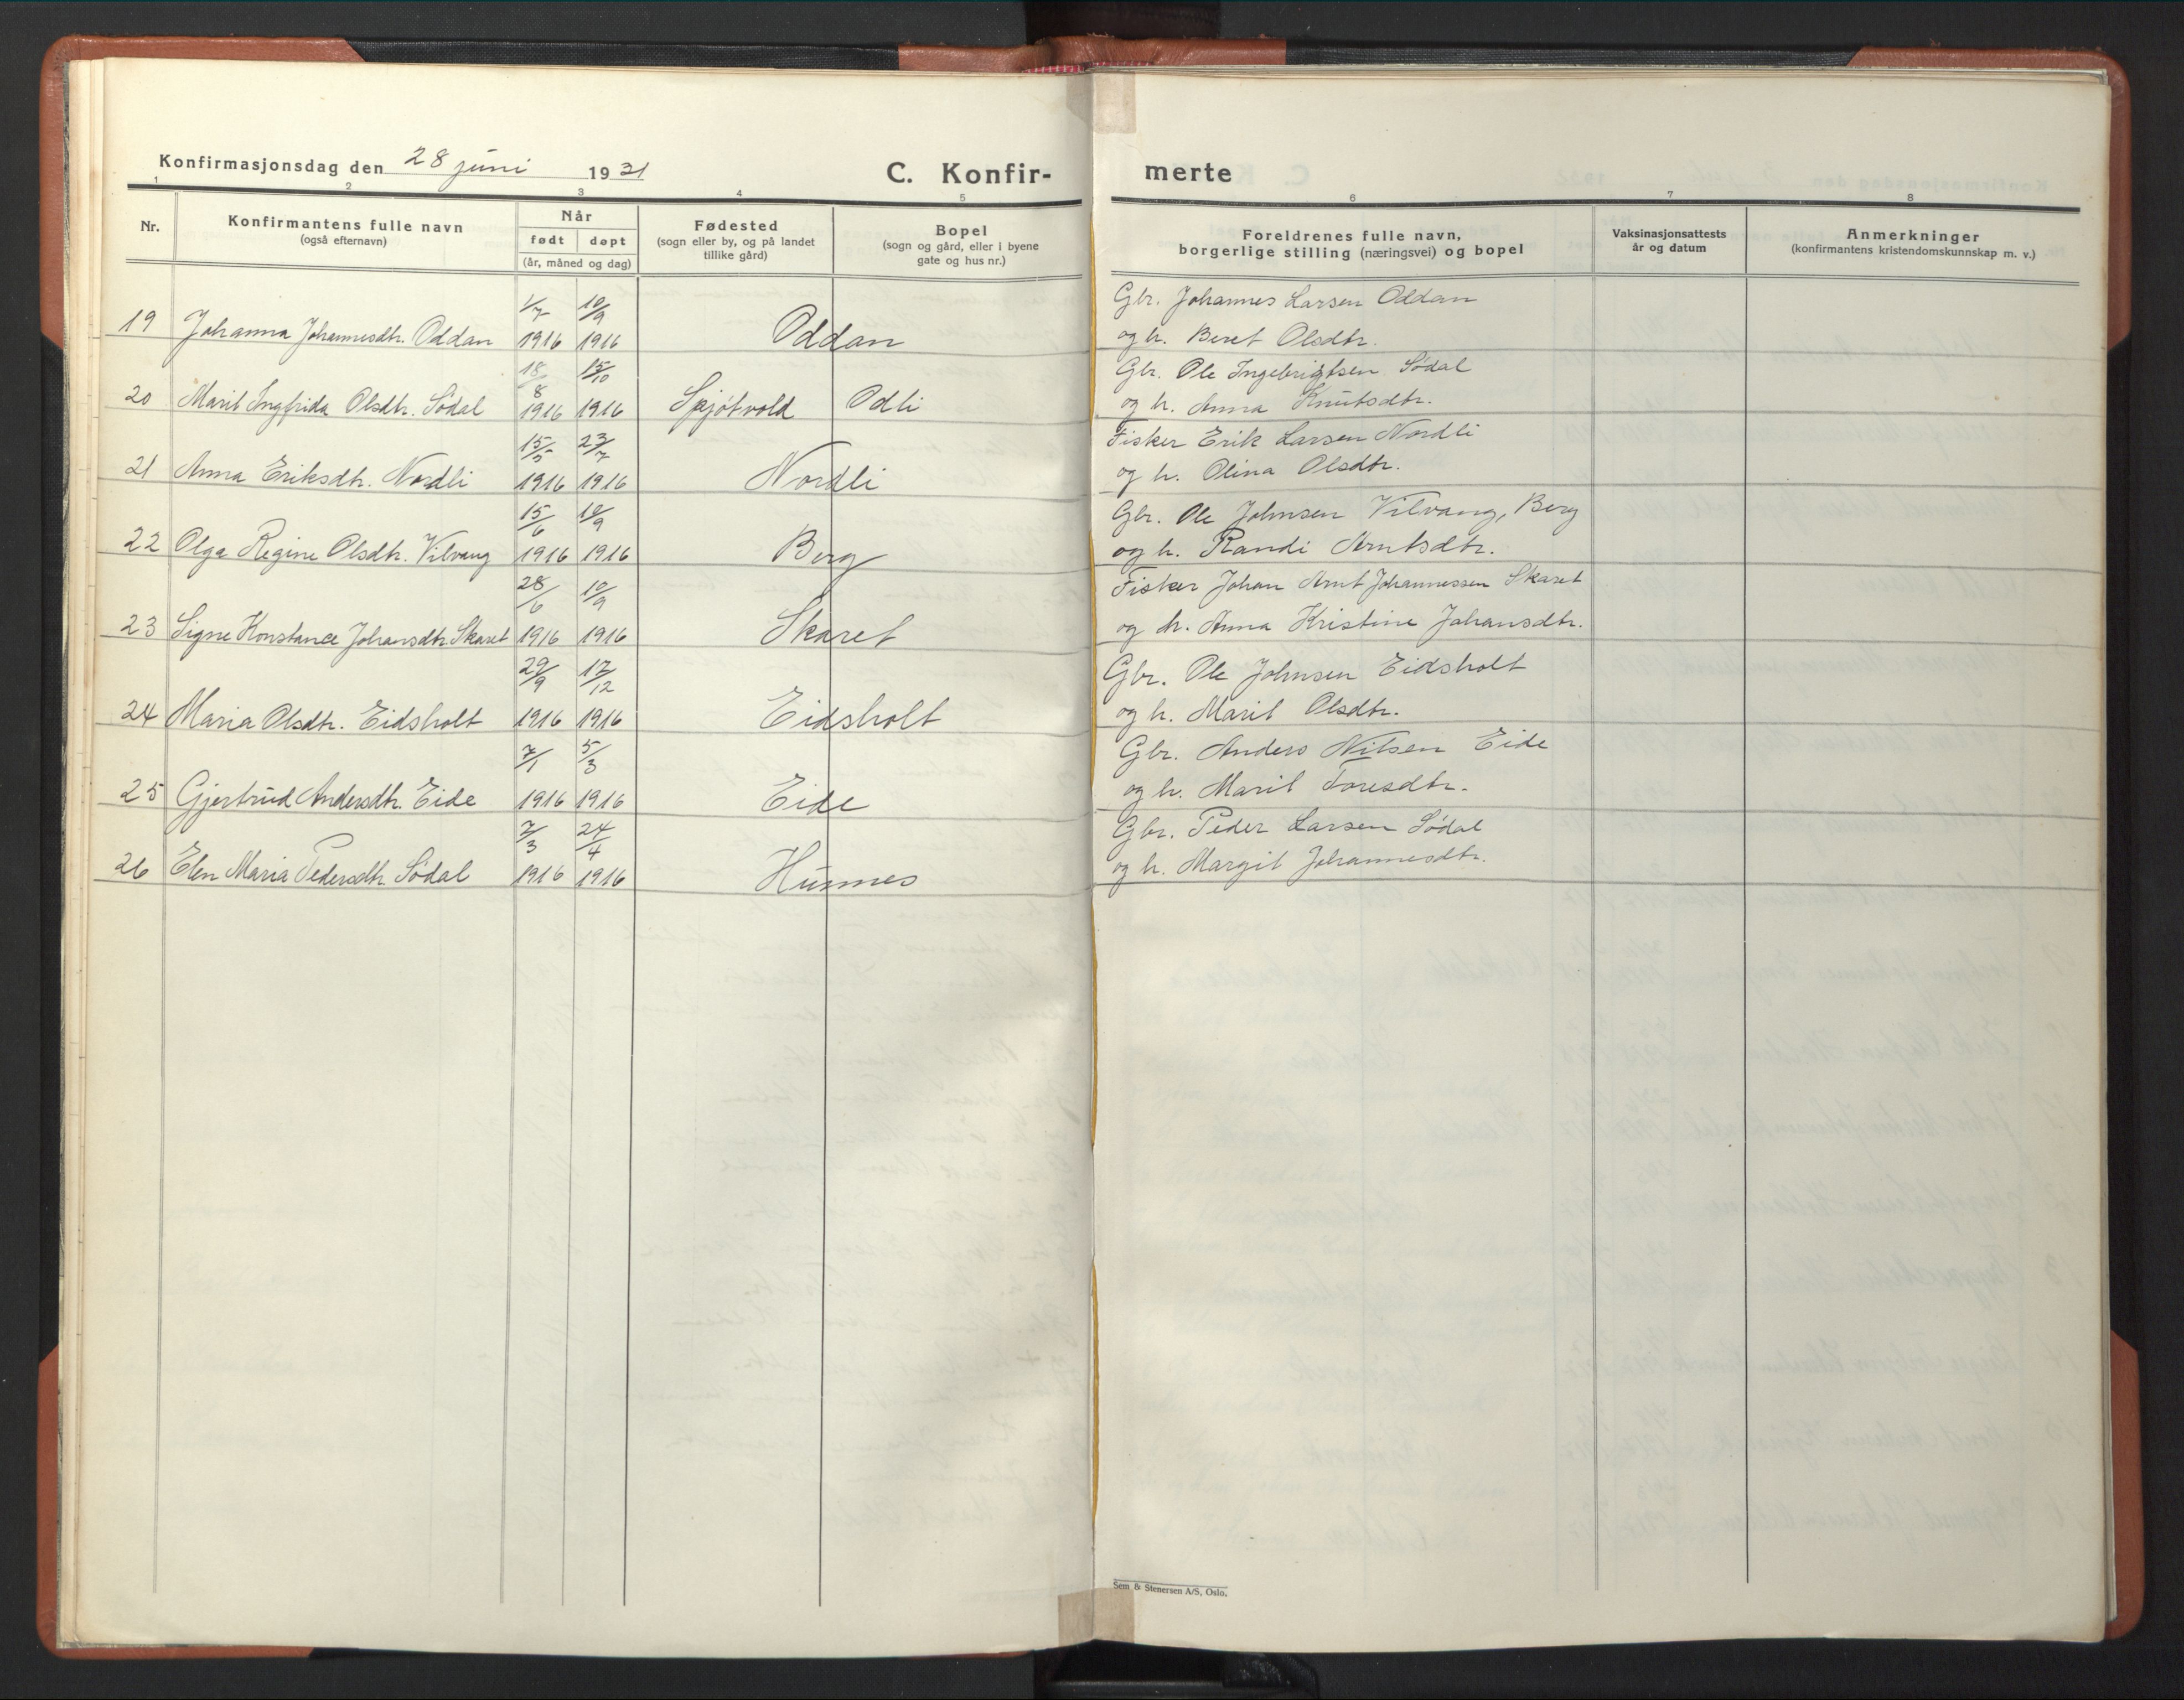 Konfirmasjonsdag den 28 juni 1931
C. Konfir-
merte
1 2 3 4 5 6 7 8
Nr.
Konfirmantens fulle navn
(også efternavn)
Når
født døpt
(år, måned og dag)
Fødested
(sogn eller by, og på landet
tillike gård)
Bopel
(sogn og gård, eller i byene
gate og hus nr.)
Foreldrenes fulle navn,
borgerlige stilling (næringsvei) og bopel
Vaksinasjonsattests
år og datum
Anmerkninger
(konfirmantens kristendomskunnskap m. v.)
1/7 10/9 Gbr. Johannes Larsen Oddan
19 Johanna Johannesdtr. Oddan 1916 1916 Oddan og h. Beret Olsdtr.
18/8 15/10 Gbr. Ole Ingebrigtsen Sødal
20 Marit Ingfrida Olsdtr. Sødal 1916 1916 Spjøtvold Odli og h. Anna Knutsdtr.
15/5 23/7 Fisker Erik Larsen Nordli
21 Anna Eriksdtr. Nordli 1916 1916 Nordli og h. Olina Olsdtr.
15/6 10/9 Gbr. Ole Johnsen Vilvang, Berg
22 Olga Regine Olsdtr. Vilvang 1916 1916 Berg og h. Randi Arntsdtr.
28/6 10/9 Fisker Johan Arnt Johannessen Skaret
23 Signe Konstance Johansdtr. Skaret 1916 1916 Skaret og h. Anna Kristine Johansdtr.
29/9 17/12 Gbr. Ole Johnsen Eidsholt
24 Maria Olsdtr. Eidsholt 1916 1916 Eidsholt og h. Marit Olsdtr.
7/1 5/3 Gbr. Anders Nilsen Eide
25 Gjertrud Andersdtr. Eide 1916 1916 Eide og h. Marit Toresdtr.
7/3 24/4 Gbr. Peder Larsen Sødal
26 Elen Maria Pedersdtr. Sødal 1916 1916 Hunnes og h. Margit Johannesdtr.
Sem & Stenersen A/S, Oslo.